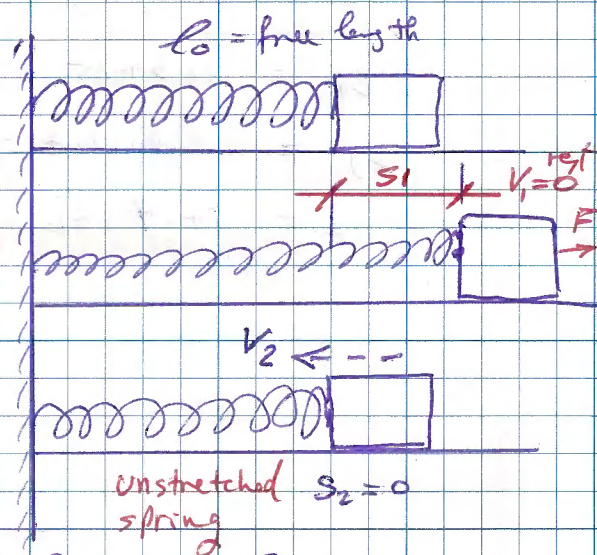 l₀ = free length
S1
V₁=0
rest
F
V₂
unstretched S₂=0
spring